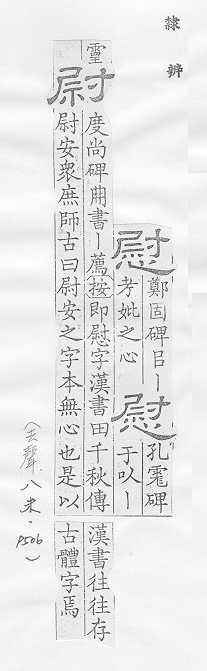 隸辨
慰
鄭固碑㠯丨
考妣之心
慰
孔 碑
于㕥丨
尉
度尚碑開書丨薦按即慰字漢書田千秋傳
尉安衆庶師古曰尉安之字本無心也是以
漢書往往存
古體字焉
(去聲 八未·P506)